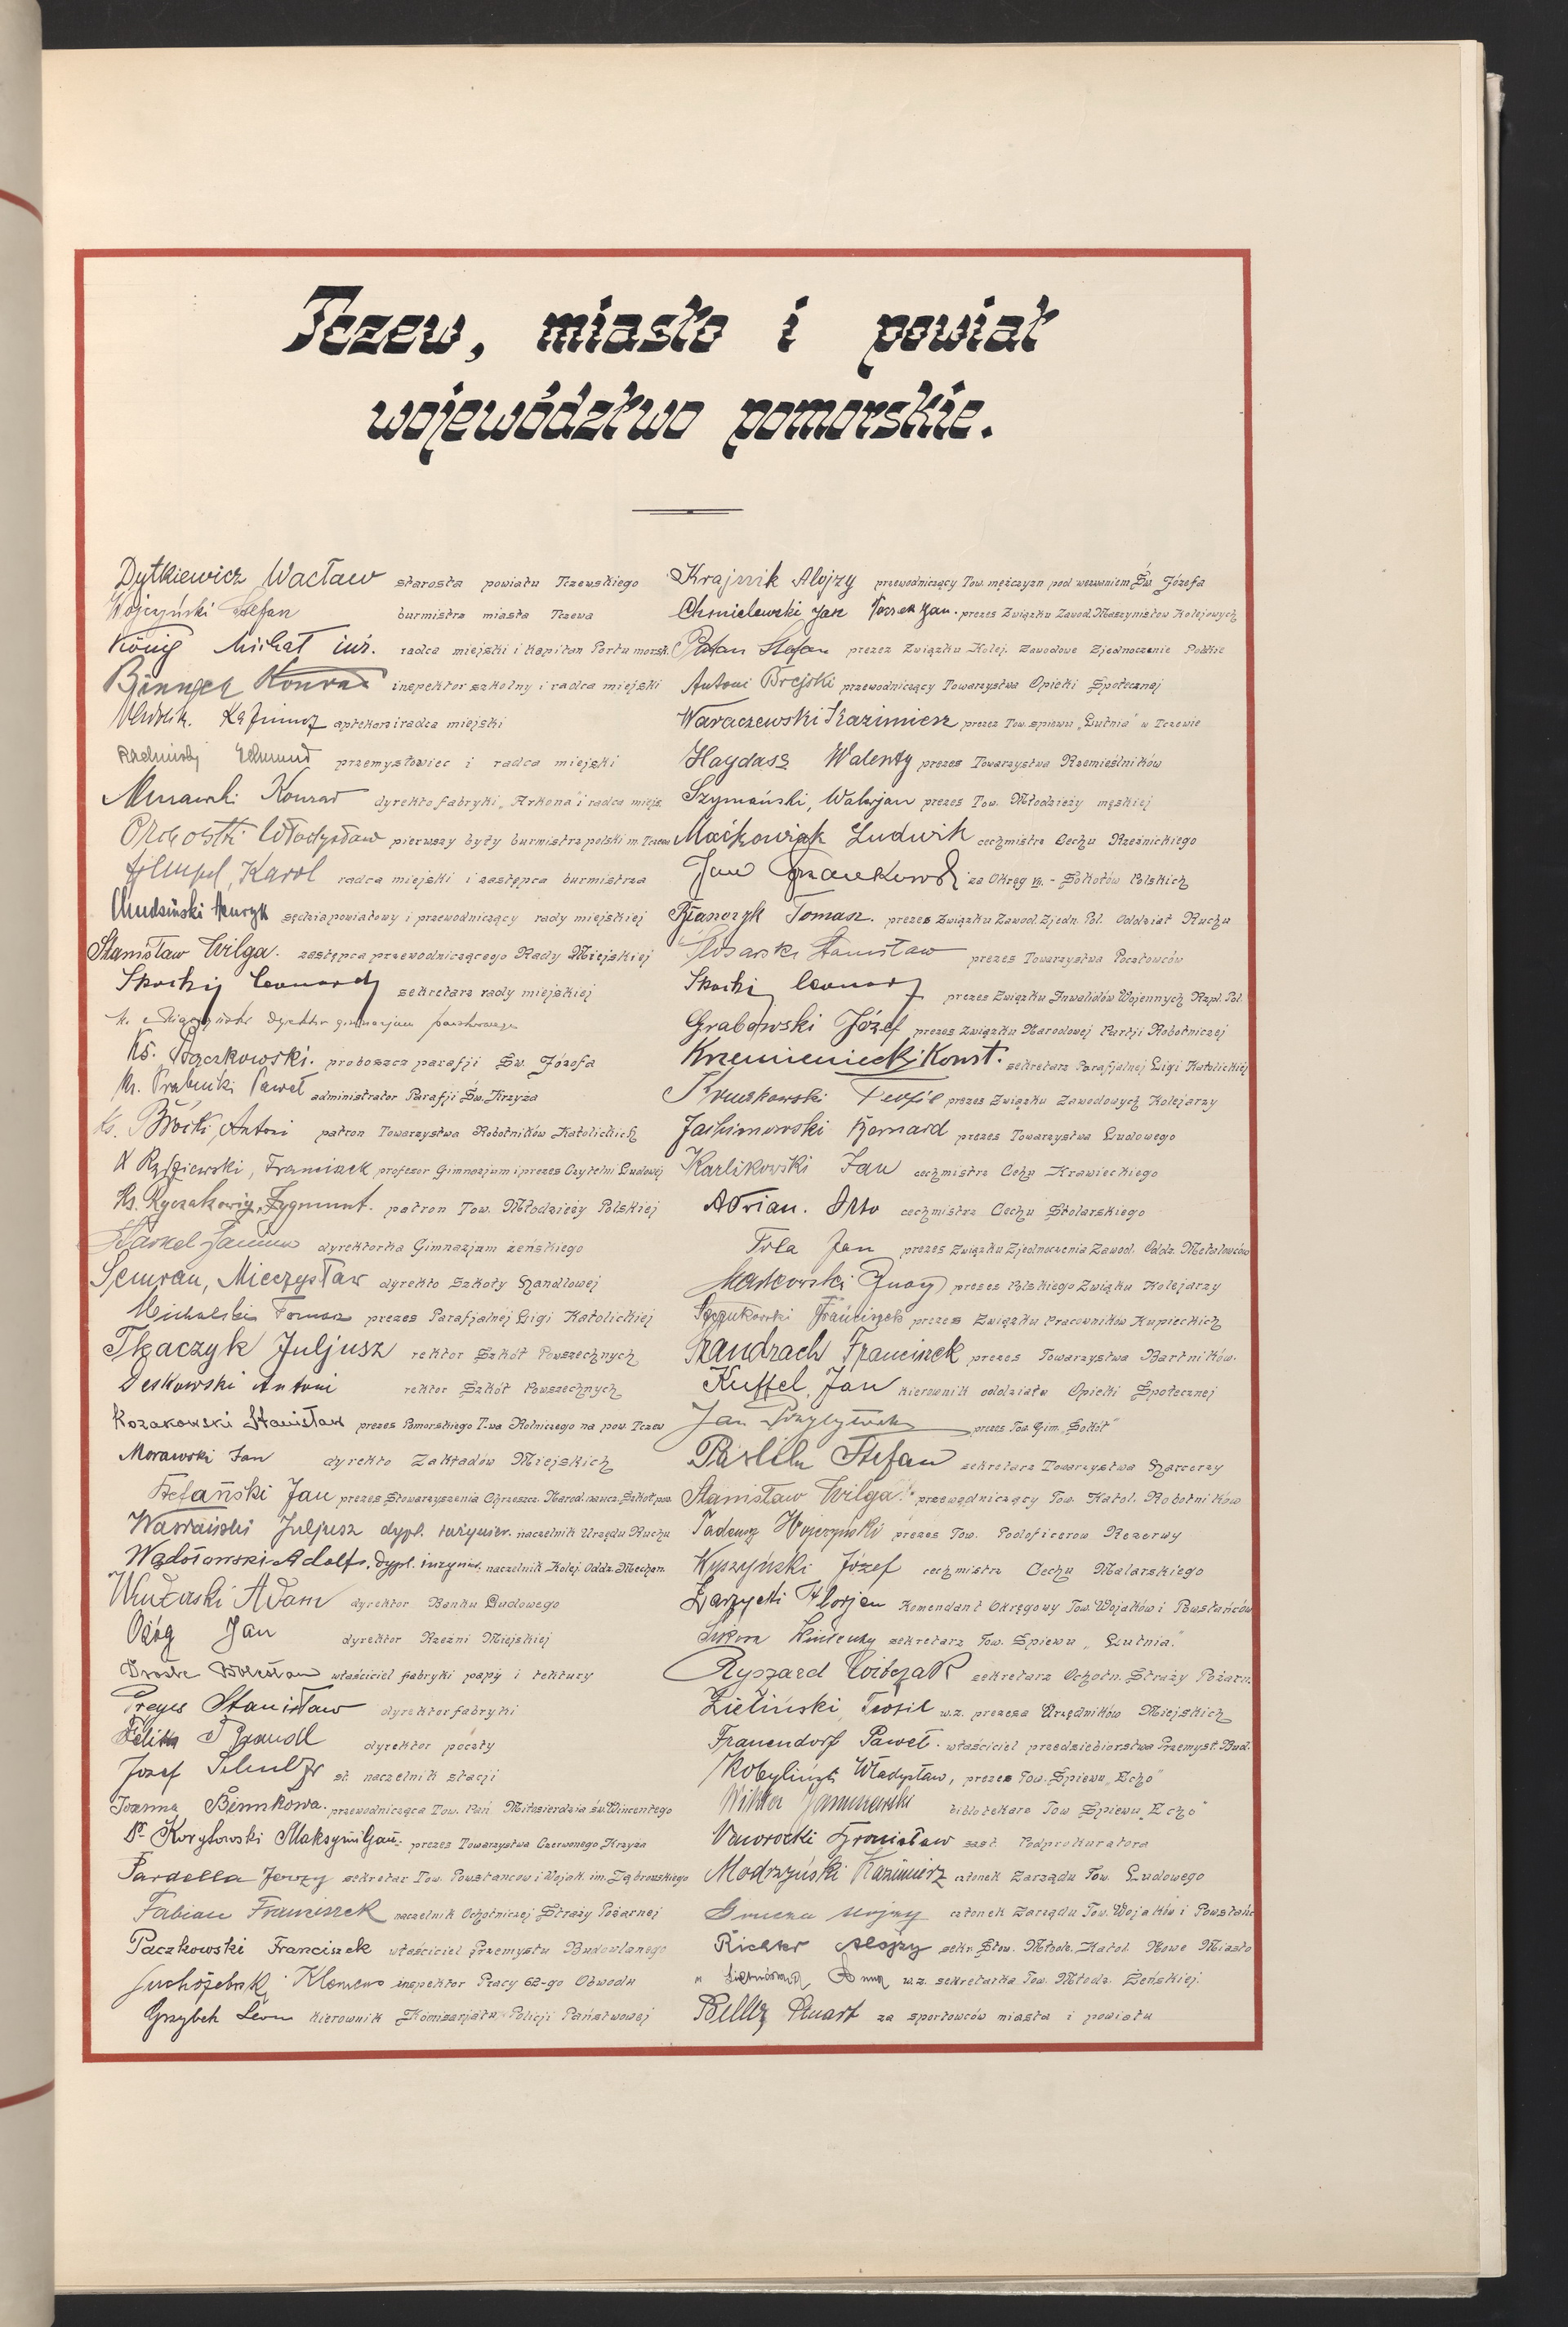 Tczew, miasto i powiat
województwo pomorskie.
Dytkiewicz Wacław starosta powiatu Tczewskiego
Wojczyński Stefan burmistrz miasta Tczewa
König Michał inż. radca miejski i kapitan Portu morsk.
Konrad inspektor szkolny i radca miejski
aptekarz i radca miejski
Edmund przemysłowiec i radca miejski
Murawski Konrad dyrekto fabryki „Arkona" i radca miejs.
Orchowski Władysław pierwszy były burmistrz polski m. Tczewa
Hempel, Karol radca miejski i zastępca burmistrza
Chudziński Henryk sędzia powiatowy i przewodniczący rady miejskiej
Stanisław Wilga. zastępca przewodniczącego Rady Miejskiej
Skocki Leonard sekretarz rady miejskiej
dyrektor gimnazjum państwowego
Ks. Bączkowski. proboszcz parafji Św. Józefa
Ks. Prabucki Paweł administrator Parafji Św. Krzyża
Ks. Bröcki, Antoni patron Towarzystwa Robotników Katolickich
Franciszek profezor Gimnazjum i prezes Czytelni Ludowej
Ks. Zygmunt. patron Tow. Młodzieży Polskiej
Janina dyrektorka Gimnazjum żeńskiego
Semrau, Mieczysław dyrekto Szkoły Handlowej
Michalski Tomasz prezes Parafjalnej Ligi Katolickiej
Tkaczyk Juljusz rektor Szkół Powszechnych
Deskowski Antoni rektor Szkół Powszechnych
Kozakowski Stanisław prezes Pomorskiego T-wa Rolniczego na pow. Tczew
Morawski Jan dyrekto Zakładów Miejskich
Stefański Jan prezes Stowarzyszenia Chrzescz. Narod. naucz. Szkół pow.
Juljusz dypl. inżynier. naczelnik Urzędu Ruchu
Wądołowski Adolf, dypl. inżynier. naczelnik Kolej. Oddz. Mechan.
Adam dyrektor Banku Ludowego
Ożóg Jan dyrektor Rzeźni Miejskiej
właściciel fabryki papy i tektury
Preyss Stanisław dyrektor fabryki
Feliks Brandl dyrektor poczty
Jozef Schultz st. naczelnik stacji
Joanna Bemkowa. przewodnicząca Tow. Pań Miłosierdzia św. Wincentego
Dr. Korytowski Maksymiljan. prezes Towarzystwa Czerwonego Krzyża
Pardella Jerzy sekretar Tow. Powstancow i Wojak. im. Dąbrowskiego
Fabian Franciszek naczelnik Ochotniczej Straży Pożarnej
Paczkowski Franciszek właściciel Przemysłu Budowlanego
Suchożebrski Klemens inspektor Pracy 62-go Obwodu
Grzybek Leon kierownik Komisarjatu Policji Państwowej
Krajnik Alojzy przewodniczący Tow. mężczyzn pod wezwaniem Św. Józefa
Chmielewski Jan prezes Związku Zawod. Maszynistow Kolejowych
Stefan prezez Związku Kolej. Zawodowe Zjednoczenie Polskie
Antoni Brejski przewodniczący Towarzystwa Opieki Społecznej
Waraczewski Kazimierz prezez Tow. spiewu „Lutnia" w Tczewie
Haydasz Walenty prezes Towarzystwa Rzemieślników
Szymański, Walerjan prezes Tow. Młodzieży męskiej
Maćkowiak Ludwik cechmistrz Cechu Rzeźnickiego
Jan za Okręg VII. - Sokołów Polskich
Tomasz. prezes Związku Zawod. Zjedn. Pol. Oddział Ruchu
Stanisław prezes Towarzystwa Pocztowców
Skocki Leonard prezes Związku Inwalidów Wojennych Rzpl. Pol.
Grabowski Józef prezes Związku Narodowej Partji Robotniczej
Krzemieniecki Konst. sekretarz Parafjalnej Ligi Katolickiej
Kruszkowski Teofil prezes Związku Zawodowych Kolejarzy
Jachimowski Bernard prezes Towarzystwa Ludowego
Karlikowski Jan cechmistrz Cechu Krawieckiego
Adrian. Otto cechmistrz Cechu Stolarskiego
Jan prezes Związku Zjednoczenia Zawod. Oddz. Metalowców
Maskowski Ignacy prezes Polskiego Związku Kolejarzy
Franciszek prezes Związku Pracowników Kupieckich
Szandrach Franciszek prezes Towarzystwa Bartników.
Kuffel, Jan kierownik oddziału Opieki Społecznej
Jan prezes Tow. Gim. „Sokół"
Stefan sekretarz Towarzystwa Harcerzy
Stanisław Wilga. przewodniczący Tow. Katol. Robotników
Tadeusz Wojczyński prezes Tow. Podoficerow Rezerwy
Wyszyński Józef cechmistrz Cechu Malarskiego
Zarzycki Florjan Komendant Okręgowy Tow. Wojaków i Powstańców
Sikora Wincenty sekretarz Tow. Spiewu „Lutnia."
Ryszard Woibczak sekretarz Ochotn. Straży Pożarn.
Zieliński, Teofil w.z. prezesa Urzędników Miejskich
Frauendorf Paweł. właściciel przedziebiorstwa Przemysł. Bud.
Kobyliński Władysław, prezes Tow. Śpiewu „Echo"
Wiktor Januszewski bibliotekarz Tow Spiewu „Echo"
Nawrocki Bronisław zast. Podprokuratora
Modrzyński Kazimierz członek Zarządu Tow. Ludowego
członek Zarządu Tow. Wojaków i Powstańc
Richter Alojzy sekr. Stow. Młodz. Katol. Nowe Miasto
Anna w.z. sekretarka Tow. Młodz. Żeńskiej.
za sportowców miasta i powiatu